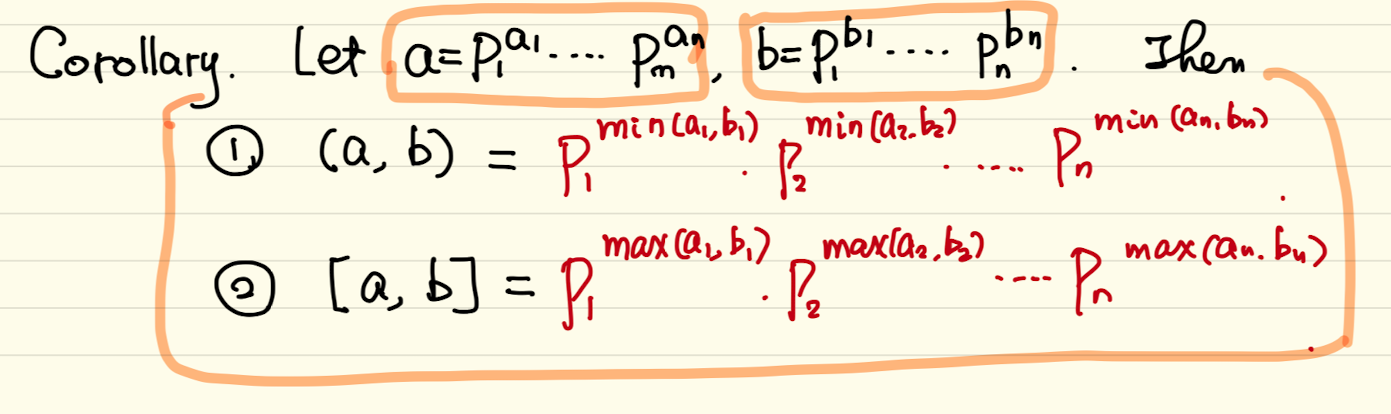 Corollary. Let a=p₁^{a₁}.... p_m^{a_n}, b=p₁^{b₁}.... p_n^{b_n}. Then
① (a, b) = p₁^{min(a₁,b₁)} . p₂^{min(a₂.b₂)} ..... p_n^{min(a_n.b_n)}.
② [a, b] = p₁^{max(a₁,b₁)} . p₂^{max(a₂,b₂)} .... p_n^{max(a_n.b_n)}.